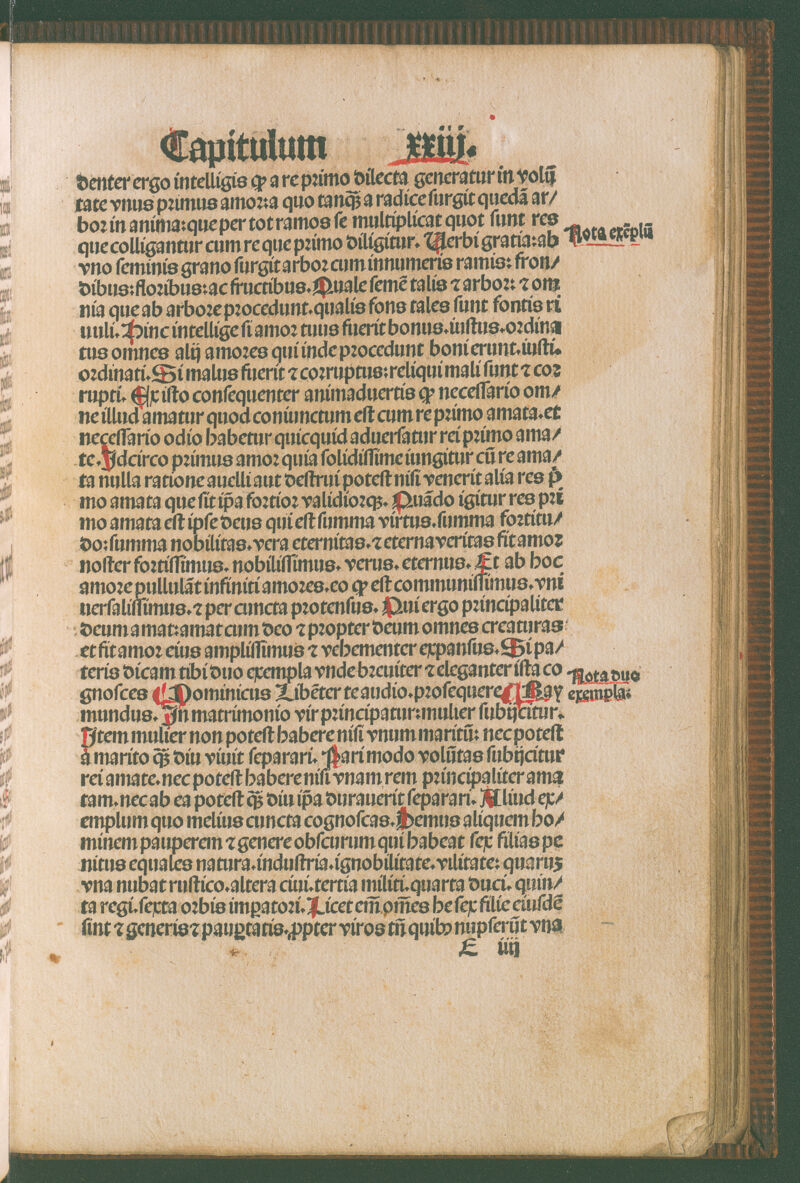 Capitulum xxiij.
denter ergo intelligis ꝙ a re primo dilecta generatur in volū
tate vnus primus amor:a quo tanꝗ̃ a radice surgit quedā ar/
bor in anima:que per tot ramos se multiplicat quot sunt res
que colligantur cum re que primo diligitur. Verbi gratia:ab
Nota exẽplũ
vno seminis grano surgit arbor cum innumeris ramis: fron/
dibus:floribus:ac fructibus. Quale semē talis ⁊ arbor: ⁊ om
nia que ab arbore procedunt.qualis fons tales sunt fontis ri
uuli. Hinc intellige si amor tuus fuerit bonus.iustus.ordina
tus omnes alij amores qui inde procedunt boni erunt.iusti.
ordinati. Si malus fuerit ⁊ corruptus:reliqui mali sunt ⁊ cor
rupti. Ex isto consequenter animaduertis ꝙ necessario om/
ne illud amatur quod coniunctum est cum re primo amata.et
necessario odio habetur quicquid aduersatur rei primo ama/
te. Idcirco primus amor quia solidissime iungitur cū re ama/
ta nulla ratione auelli aut destrui potest nisi venerit alia res p̄
mo amata que sit ip̄a fortior validiorqꝫ. Quādo igitur res pri
mo amata est ipse deus qui est summa virtus.summa fortitu/
do:summa nobilitas.vera eternitas.⁊ eterna veritas fit amor
noster fortissimus. nobilissimus. verus. eternus. Et ab hoc
amore pullulāt infiniti amores.eo ꝙ est communissimus.vni
uersalissimus.⁊ per cuncta protensus. Qui ergo principaliter
deum amat:amat cum deo ⁊ propter deum omnes creaturas
et fit amor eius amplissimus ⁊ vehementer expansus. Si pa/
teris dicam tibi duo exempla vnde breuiter ⁊ eleganter ista co
Nota duo
gnosces ¶ Dominicus Libēter te audio.prosequere ¶ Ray
exempla:
mundus. In matrimonio vir principatur:mulier subijcitur.
Item mulier non potest habere nisi vnum maritū: nec potest
a marito ꝗ̃ diu viuit separari. Pari modo volūtas subijcitur
rei amate.nec potest habere nisi vnam rem principaliter ama
tam.nec ab ea potest ꝗ̃ diu ip̄a durauerit separari. Aliud ex/
emplum quo melius cuncta cognoscas. Demus aliquem ho/
minem pauperem ⁊ genere obscurum qui habeat sex filias pe
nitus equales natura.industria.ignobilitate.vilitate: quarūꝫ
vna nubat rustico.altera ciui.tertia militi.quarta duci. quin/
ta regi.sexta orbis imꝑatori. Licet em̄ om̄es he sex filie eiusdē
sint ⁊ generis ⁊ pauꝑtatis.ꝓpter viros tn̄ quibꝰ nupserūt vna
E iiij